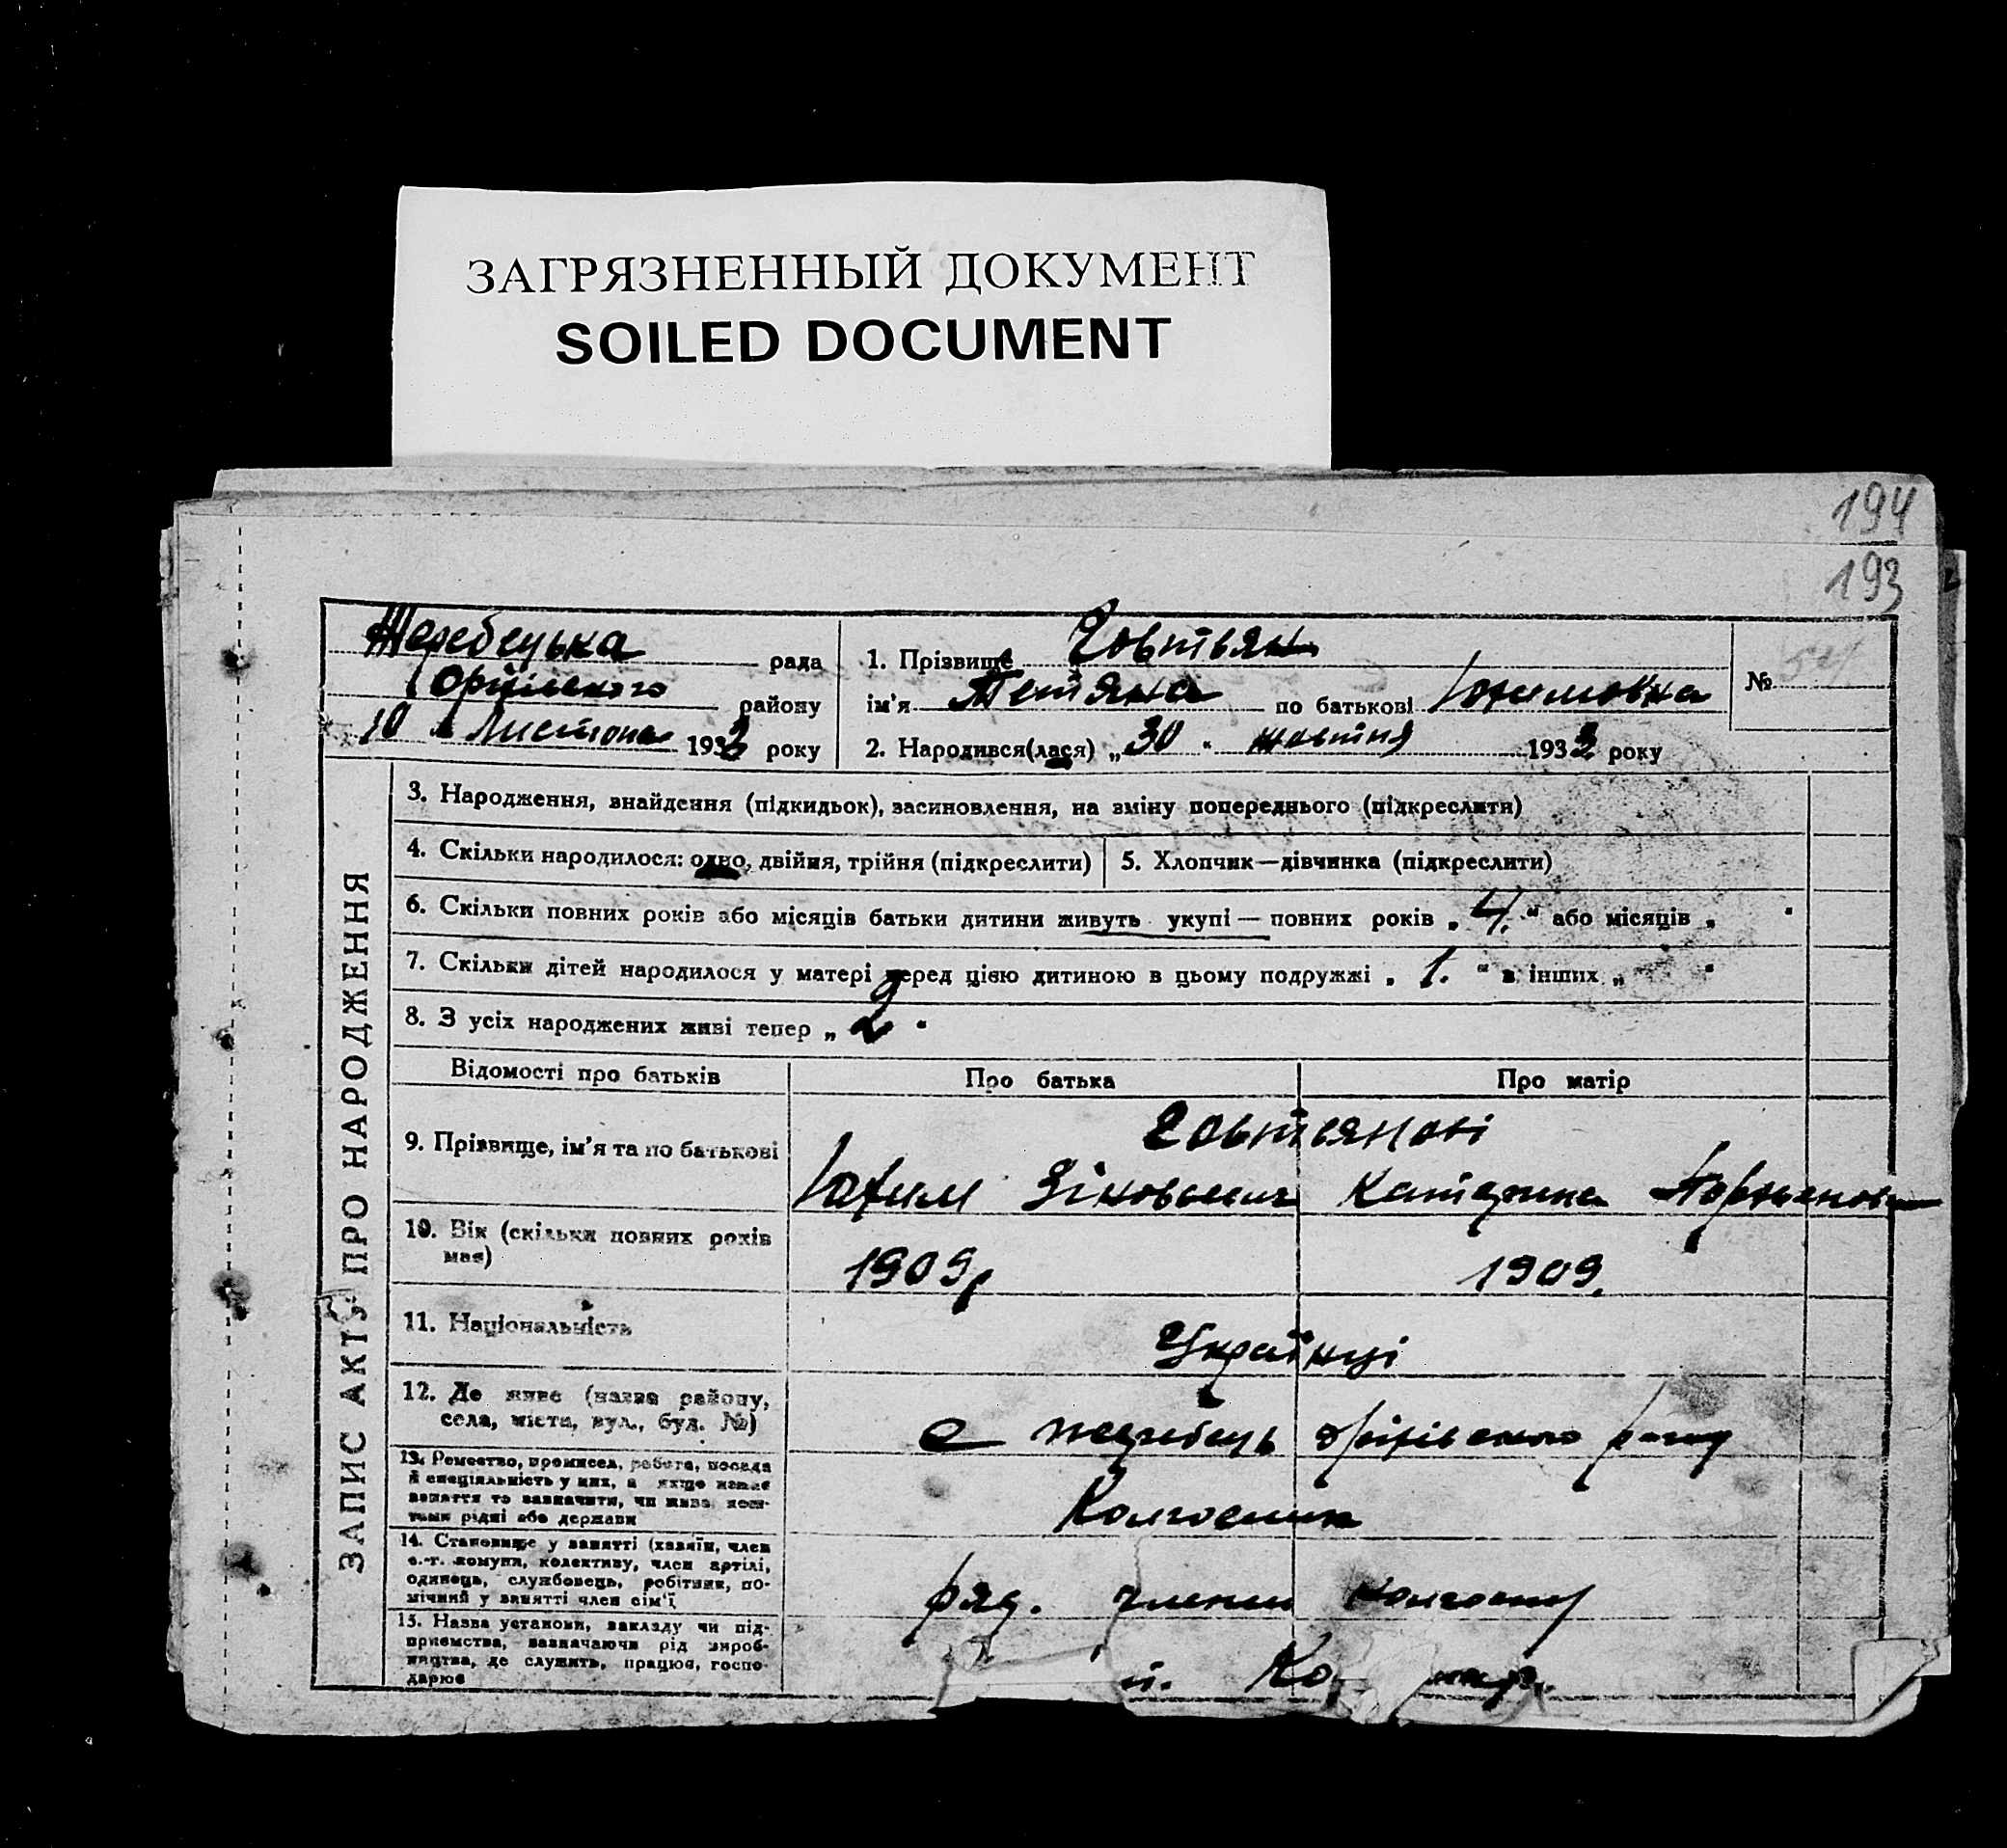 ЗАГРЯЗНЕННЫЙ ДОКУМЕНТ
SOILED DOCUMENT
194
193
Жеребецька рада
Оріхівського району
10 " Листопада 1933 року
1. Прізвище Говтвян
ім'я Тетяна по батькові Юхимовна
№ 54
2. Народився(лася) „30 " жовтня 1933 року
ЗАПИС АКТУ ПРО НАРОДЖЕННЯ
3. Народження, знайдення (підкидьок), засиновлення, на зміну попереднього (підкреслити)
4. Скільки народилося: одно, двійня, трійня (підкреслити)
5. Хлопчик—дівчинка (підкреслити)
6. Скільки повних років або місяців батьки дитини живуть укупі — повних років „ 4. " або місяців „ "
7. Скільки дітей народилося у матері перед цією дитиною в цьому подружжі „ 1. " в інших „ "
8. З усіх народжених живі тепер „ 2 "
Відомості про батьків Про батька Про матір
9. Прізвище, ім'я та по батькові
Говтвянові
Юхим Зіновьевич Катерина
10. Вік (скільки повних років має)
1909р 1909.
11. Національність
Українці
12. Де живе (назва району, села, міста, вул., буд. №)
с жеребець оріхівського рагону
13. Ремество, промисел, робота, посада й спеціяльність у них, а якщо немає заняття то зазначити, чи живе кош-
тами рідні або держави
Колгосник
14. Становище у занятті (хазяїн, член с.-г. комуни, колективу, член артілі, одинець, службовець, робітник, по-
мічний у занятті член сім'ї
ряд. члени колгоспу
15. Назва установи, закладу чи під-
приємства, зазначаючи рід вироб-
ництва, де служить, працює, госпо-
дарює